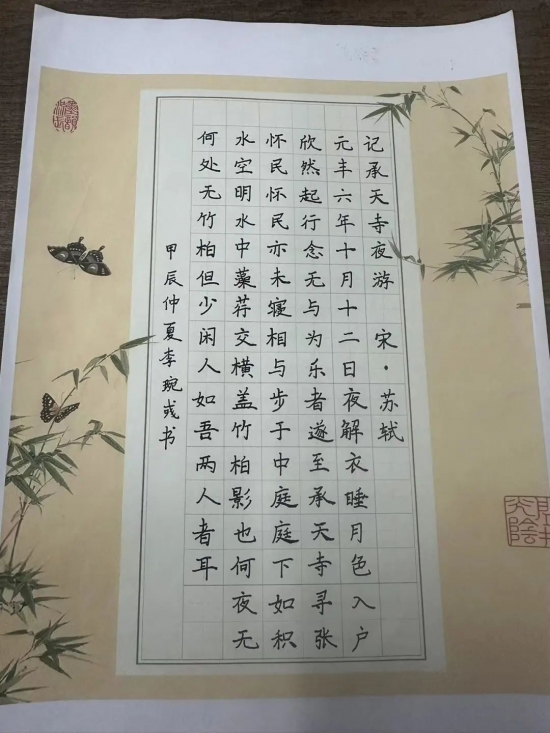 记承天寺夜游 宋·苏轼
元丰六年十月十二日夜解衣睡月色入户
欣然起行念无与为乐者遂至承天寺寻张
怀民怀民亦未寝相与步于中庭庭下如积
水空明水中藻荇交横盖竹柏影也何夜无
何处无竹柏但少闲人如吾两人者耳
甲辰仲夏李琬彧书
光陰